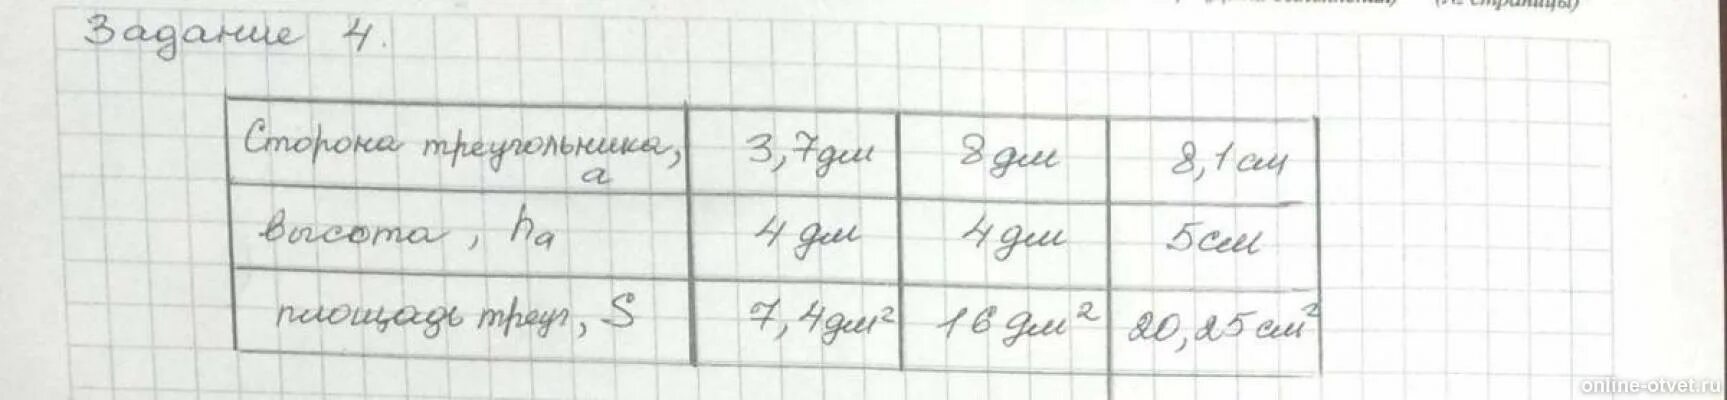 (№ страницы)
Задание 4.
Сторона треугольника, a 3,7дм 8дм 8,1см
высота, ha 4дм 4дм 5см
площадь треуг, S 7,4дм² 16дм² 20,25см²
online-otvet.ru